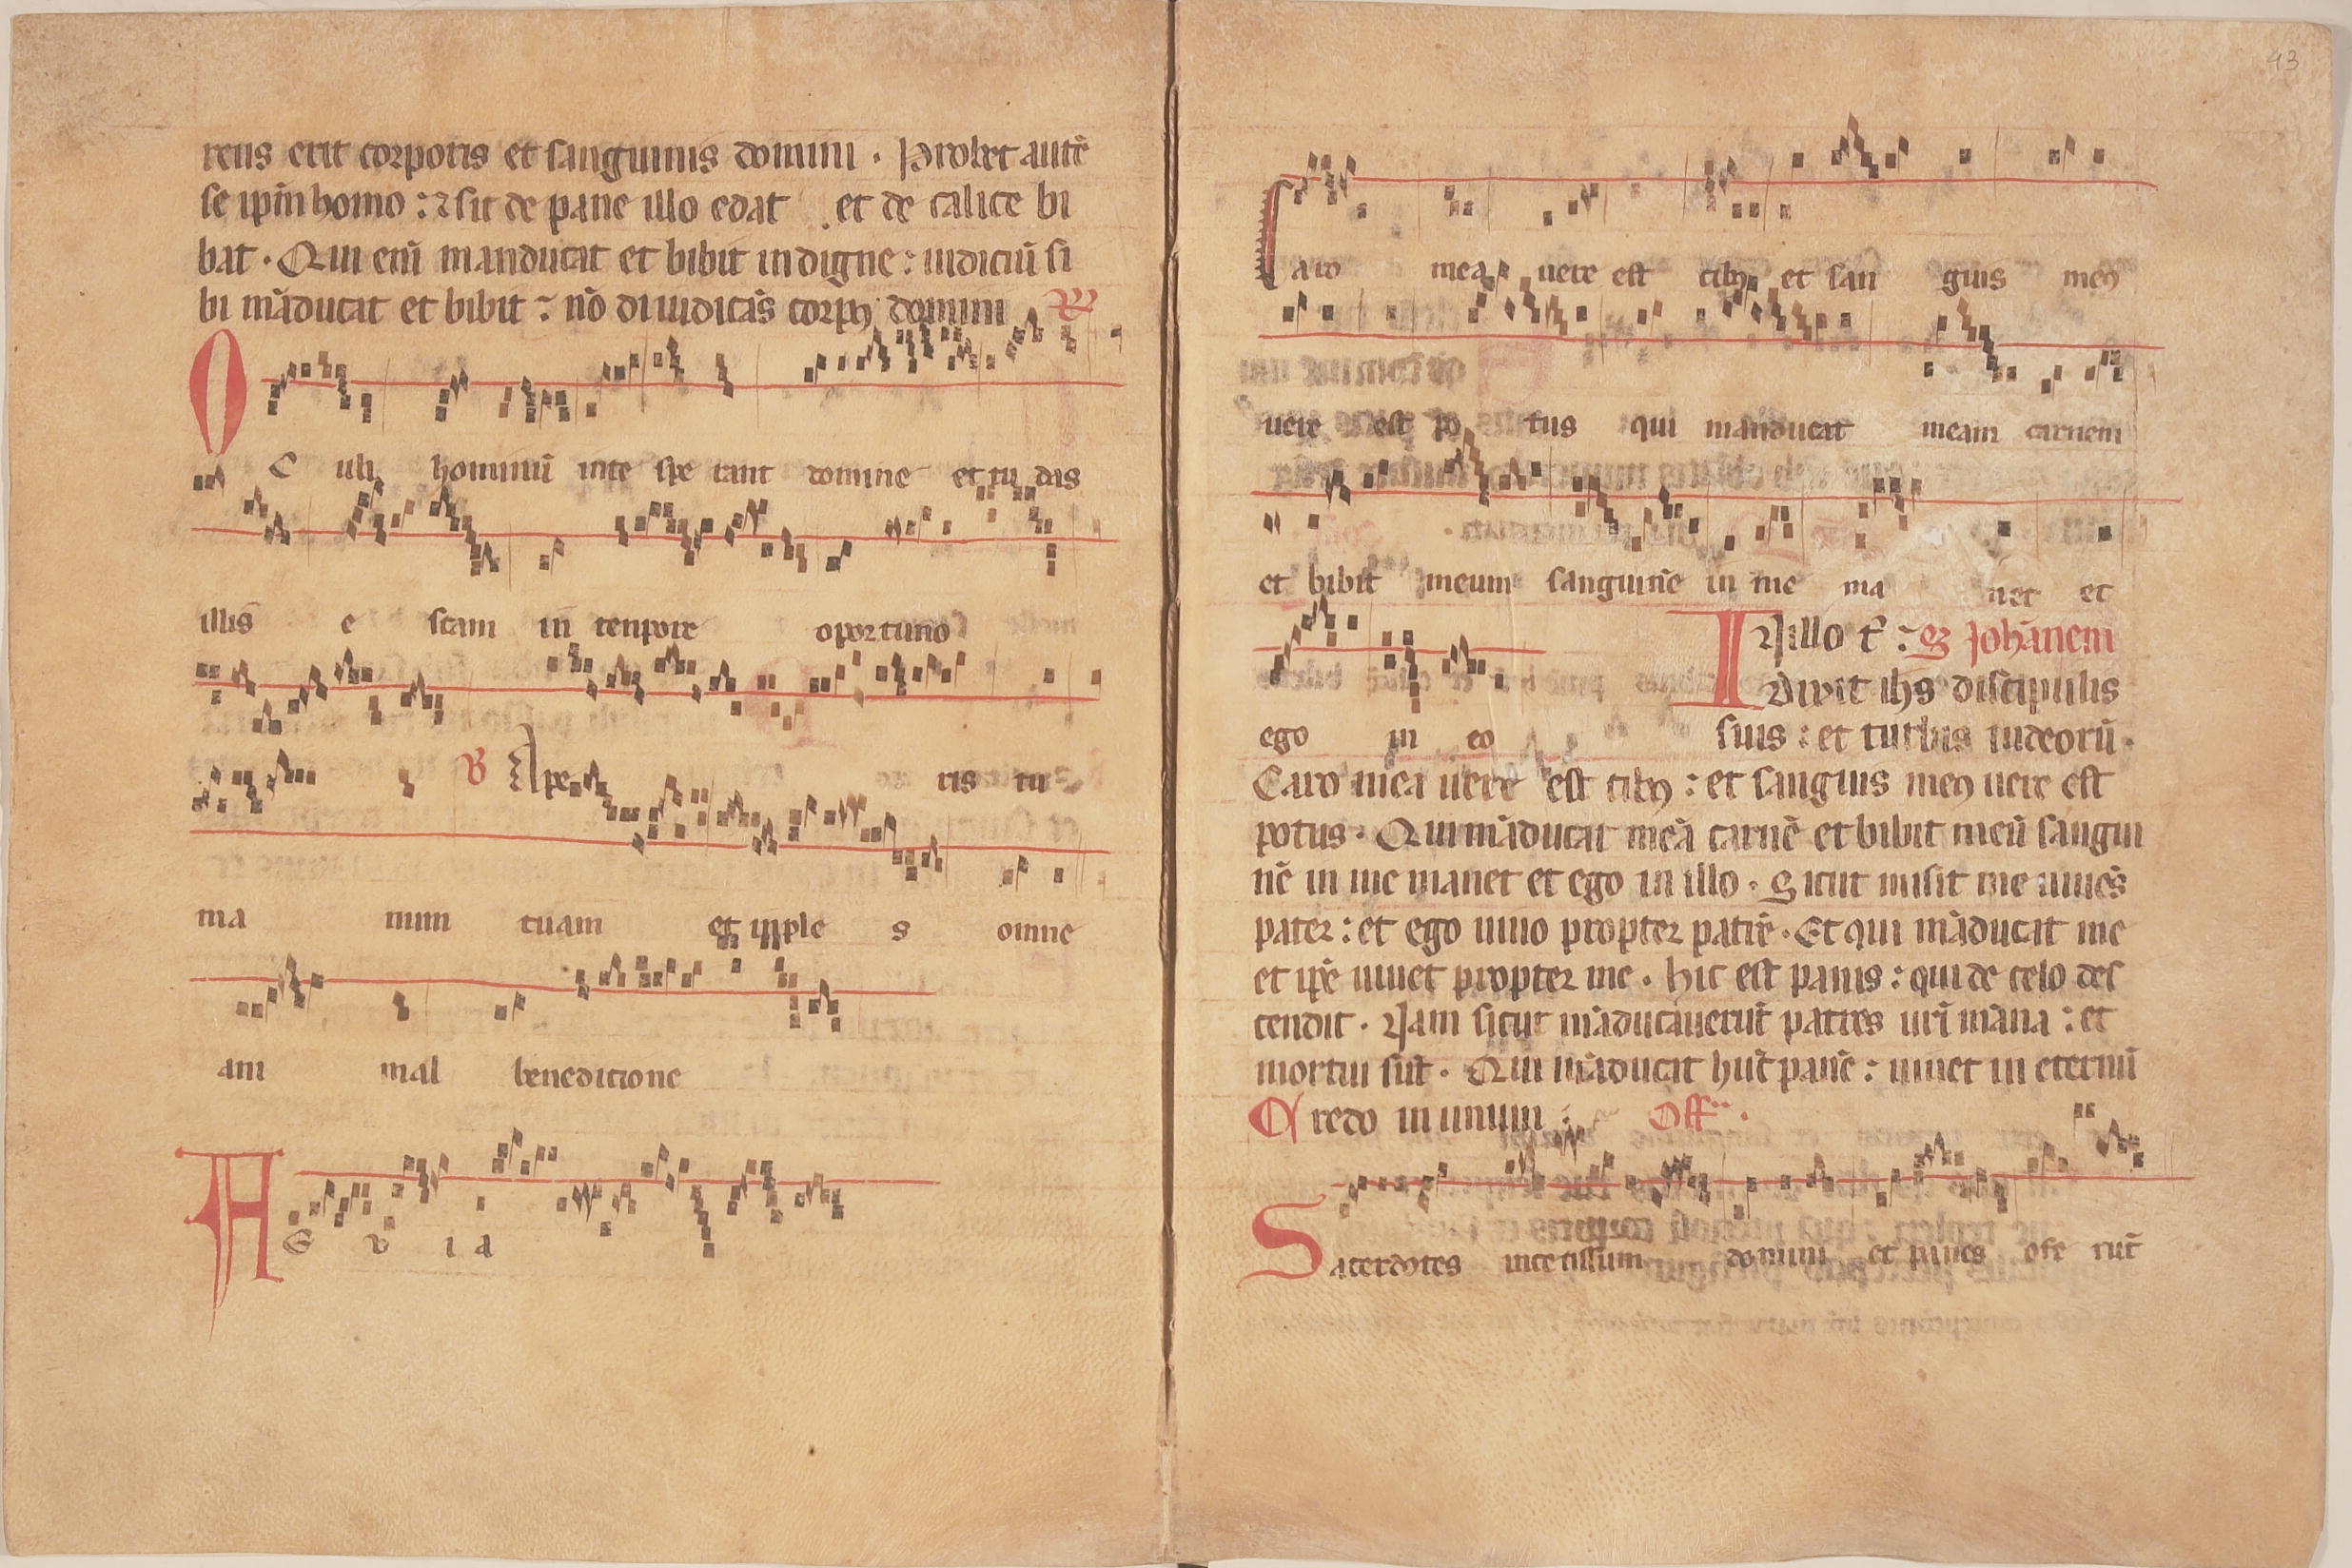 reus erit corporis et sanguinis domini . Probet autē
se ip̄m homo : ⁊ sic de pane illo edat et de calice bi
bat . Qui eni̅ manducat et bibit indigne : iudiciū si
bi māducat et bibit : nō diiudicās corpꝯ domini
O C uli hominū inte spe rant domine et tu das
illis e scam in tenpore oportuno
℣ Ape ris tu
ma num tuam et inple s omne
am mal beneditione
A E v i a
43
Caro mea uere est cibꝯ et san guis meꝯ
uere est po tus qui manducat meam carnem
et bibit meum sanguinē in me ma net et
ego in eo
IN illo t̄ : Johānem
Dixit ihs discipulis
suis : et turbis iudeorū .
Caro mea uere est cibꝯ : et sanguis meꝯ uere est
potus . Qui māducat meā carnē et bibit meū sangui
nē in me manet et ego in illo . Sicut misit me uiuēs
pater : et ego uiuo propter patrē . Et qui māducat me
et ip̄e uiuet propter me . hic est panis : qui de celo des
cendit . Nam sicut māducauerūt patres ur̄i māna : et
mortui sūt . Qui māducat hūc panē : uiuet in eternū
Credo in unum : Off .
Sacerdotes incētissum domini et panes ofe rūt